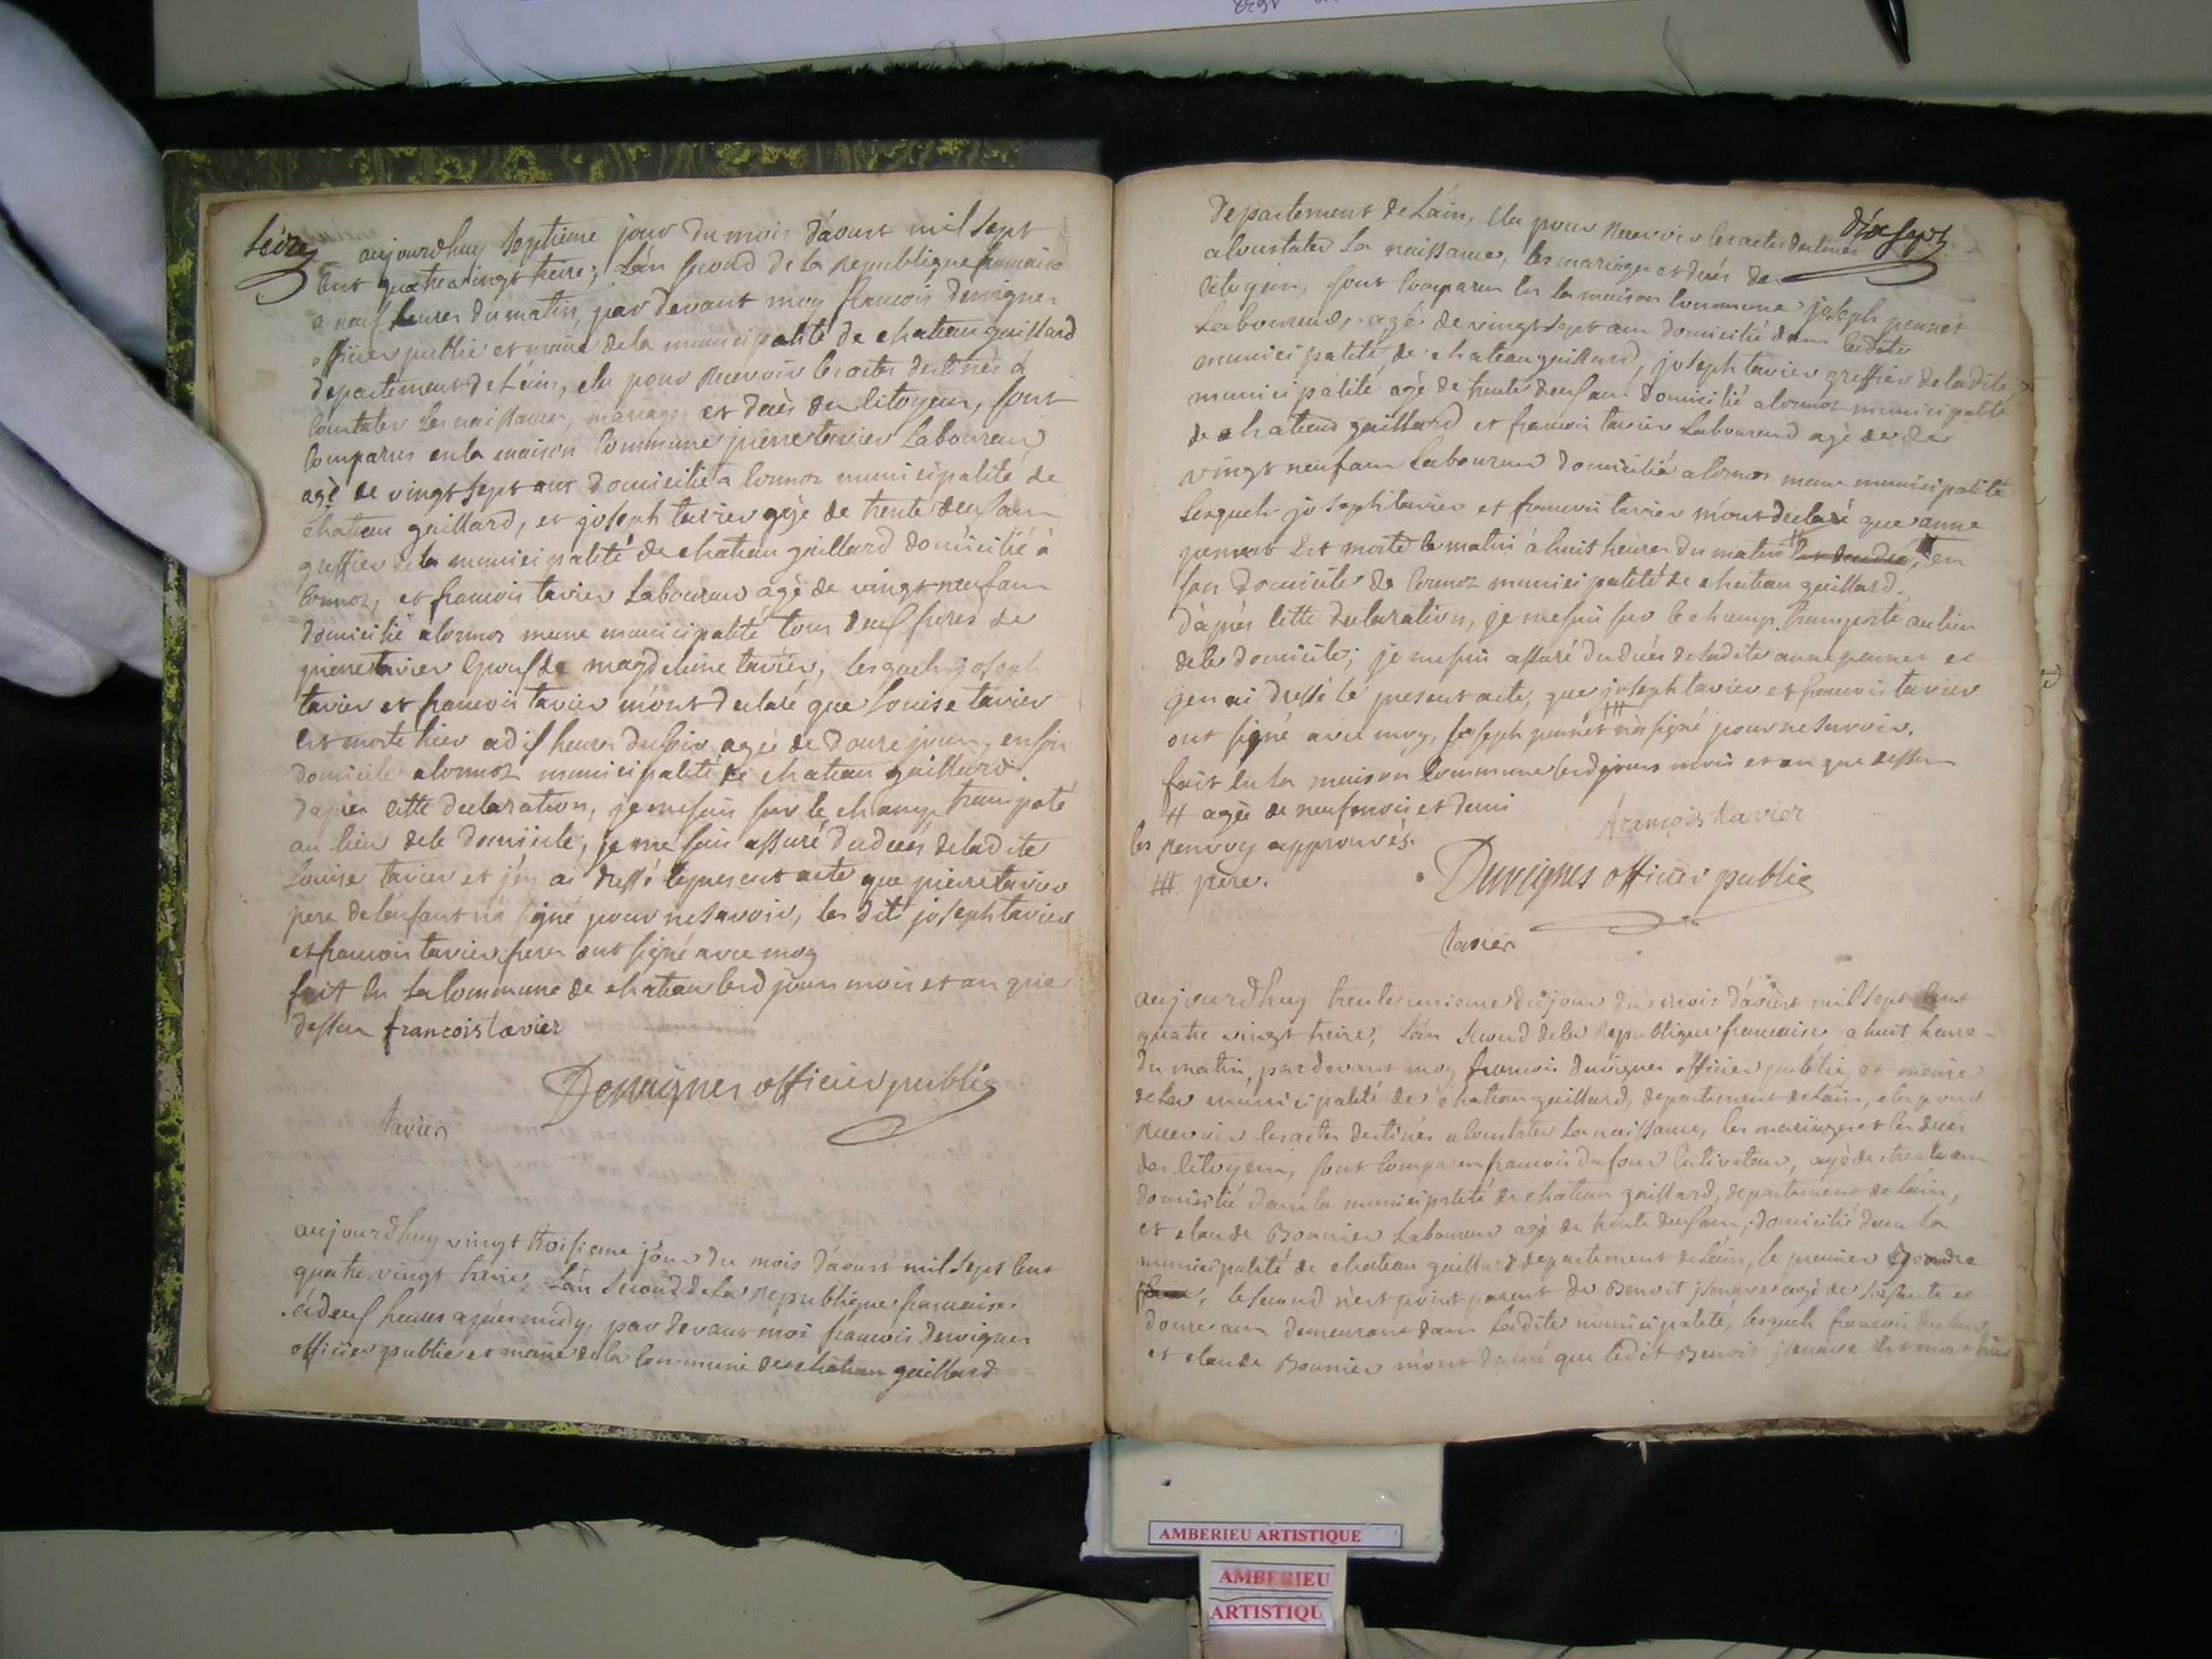 seize
aujourdhuy septieme jour du mois d'aoust mil sept
cent quatre vingt treize, l'an second de la republique francaise
a neuf heures du matin, par devant moy francois Dervignes
officier public et maire de la municipalité de chateau gaillard
departement de L'ain, elu pour recevoir les actes destinés à
constater les naissances, mariages et decès des citoyens, sont
comparus en la maison commune pierre tavier Laboureur,
agè de vingt sept ans domicilié a cormoz municipalité de
chateau gaillard, et joseph tavier agé de trente deux ans
greffier de la municipalité de chateau gaillard domicilié à
cormoz, et francois tavier Laboureur agè de vingt neuf ans
domicilié à cormoz meme municipalité tous deux freres de
pierre tavier Epoux de magdeleine tavier, lesquels joseph
tavier et francois tavier m'ont declaré que Louise tavier
est morte hier a dix heures du soir agée de douze jours, en son
domicile a cormoz municipalité de chateau gaillard.
d'après cette declaration, je me suis sur le champ transporté
au lieu de ce domicile, je me suis assuré du decès de ladite
Louise tavier et j'en ai dressé le present acte que pierre tavier
pere de l'enfant n'a signé pour ne savoir, les dit joseph tavier
et francois tavier freres ont signé avec moy
fait en la commune de chateau les d jours mois et an que
dessus francois tavier
Dervignes officier public
tavier
aujourdhuy vingt troisieme jour du mois d'aoust mil sept cent
quatre vingt treize, L'an second de la republique francaise
à deux heures après midy, par devant moi francois Dervignes
officier public et maire de la commune de chateau gaillard
dix sept
Departement de L'ain, elu pour recevoir les actes destinés
a constater la naissance, les mariages et decés des
citoyens, sont comparus en la maison commune joseph pennet
Laboureur, agé de vingt sept ans domicilié dans ladite
municipalité de chateau gaillard, joseph tavier greffier de ladite
municipalité agé de trente deux ans domicilié a cormoz municipalité
de chateau gaillard et francois tavier Laboureur agé de
vingt neuf ans Laboureur domicilié a cormoz meme municipalité
Lesquels joseph tavier et francois tavier m'ont declaré que anne
pennet est morte ce matin à huit heures du matin # en
son domicile de cormoz municipalité de chateau gaillard.
d'après cette declaration, je me suis sur le champ transporté au lieu
de ce domicile; je me suis assuré du decès de ladite anne pennet et
j'en ai dressé le present acte, que joseph tavier et francois tavier
ont signé avec moy, joseph pennet ## n'a signé pour ne savoir.
fait en la maison commune les d jours mois et an que dessus
# agée de neuf mois et demi
les renvoy approuvés.
francois tavier
## pere.
Dervignes officier public
tavier
aujourdhuy trente unieme du jour du mois d'aoust mil sept cent
quatre vingt treize, L'an second de la republique francaise, a huit heures
du matin, pardevant moy francois Dervignes officier public, et maire
de la municipalité de chateau gaillard, departement de L'ain, elu pour
recevoir les actes destinés a constater la naissance, les mariages et les decés
des citoyens, sont comparus francois dufour Cultivateur, agé de trente ans
domicilié dans la municipalité de chateau gaillard, departement de L'ain,
et claude Bonnier Laboureur agé de trente deux ans, domicilié dans la
municipalité de chateau gaillard departement de L'ain, le premier gendre
le second n'est point parent de Benoit agé de soixante et
douze ans demeurant dans ladite municipalité, lesquels francois dufour
et claude Bonnier m'ont declaré que ledit Benoit est mort hier
AMBERIEU ARTISTIQUE
AMBERIEU
ARTISTIQU